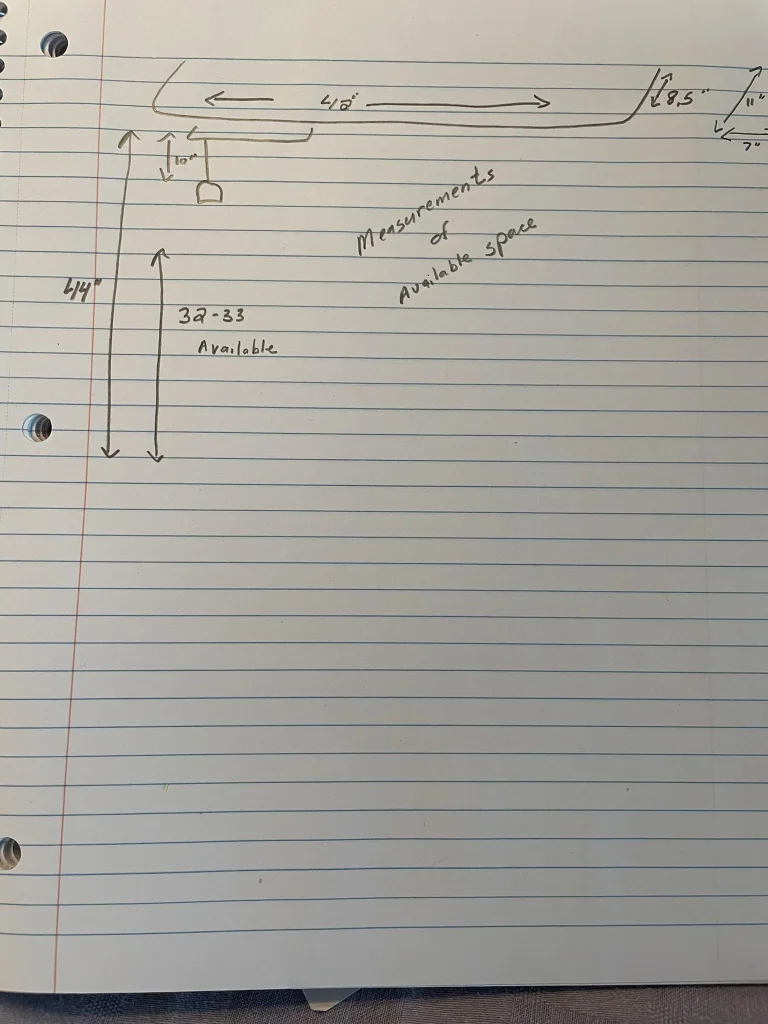 42"
8.5"
11"
7"
10"
Measurements
of
Available space
44"
32-33
Available